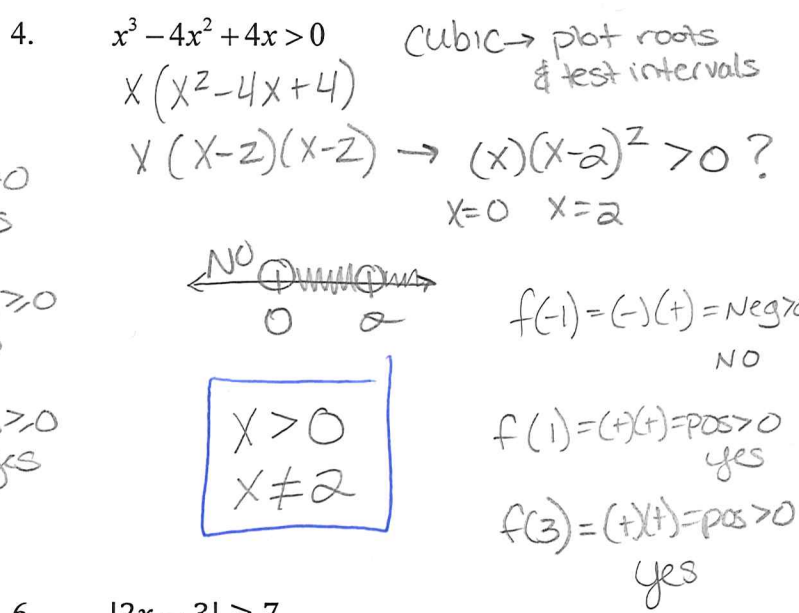 4. x³ − 4x² + 4x > 0
cubic → plot roots
& test intervals
x(x²-4x+4)
x(x-2)(x-2) → (x)(x-2)² > 0 ?
x=0 x=2
NO
0 2
x > 0
x ≠ 2
f(-1) = (-)(+) = Neg>0
NO
f(1) = (+)(+) = pos>0
yes
f(3) = (+)(+) = pos>0
yes
≥0
≥0
6.